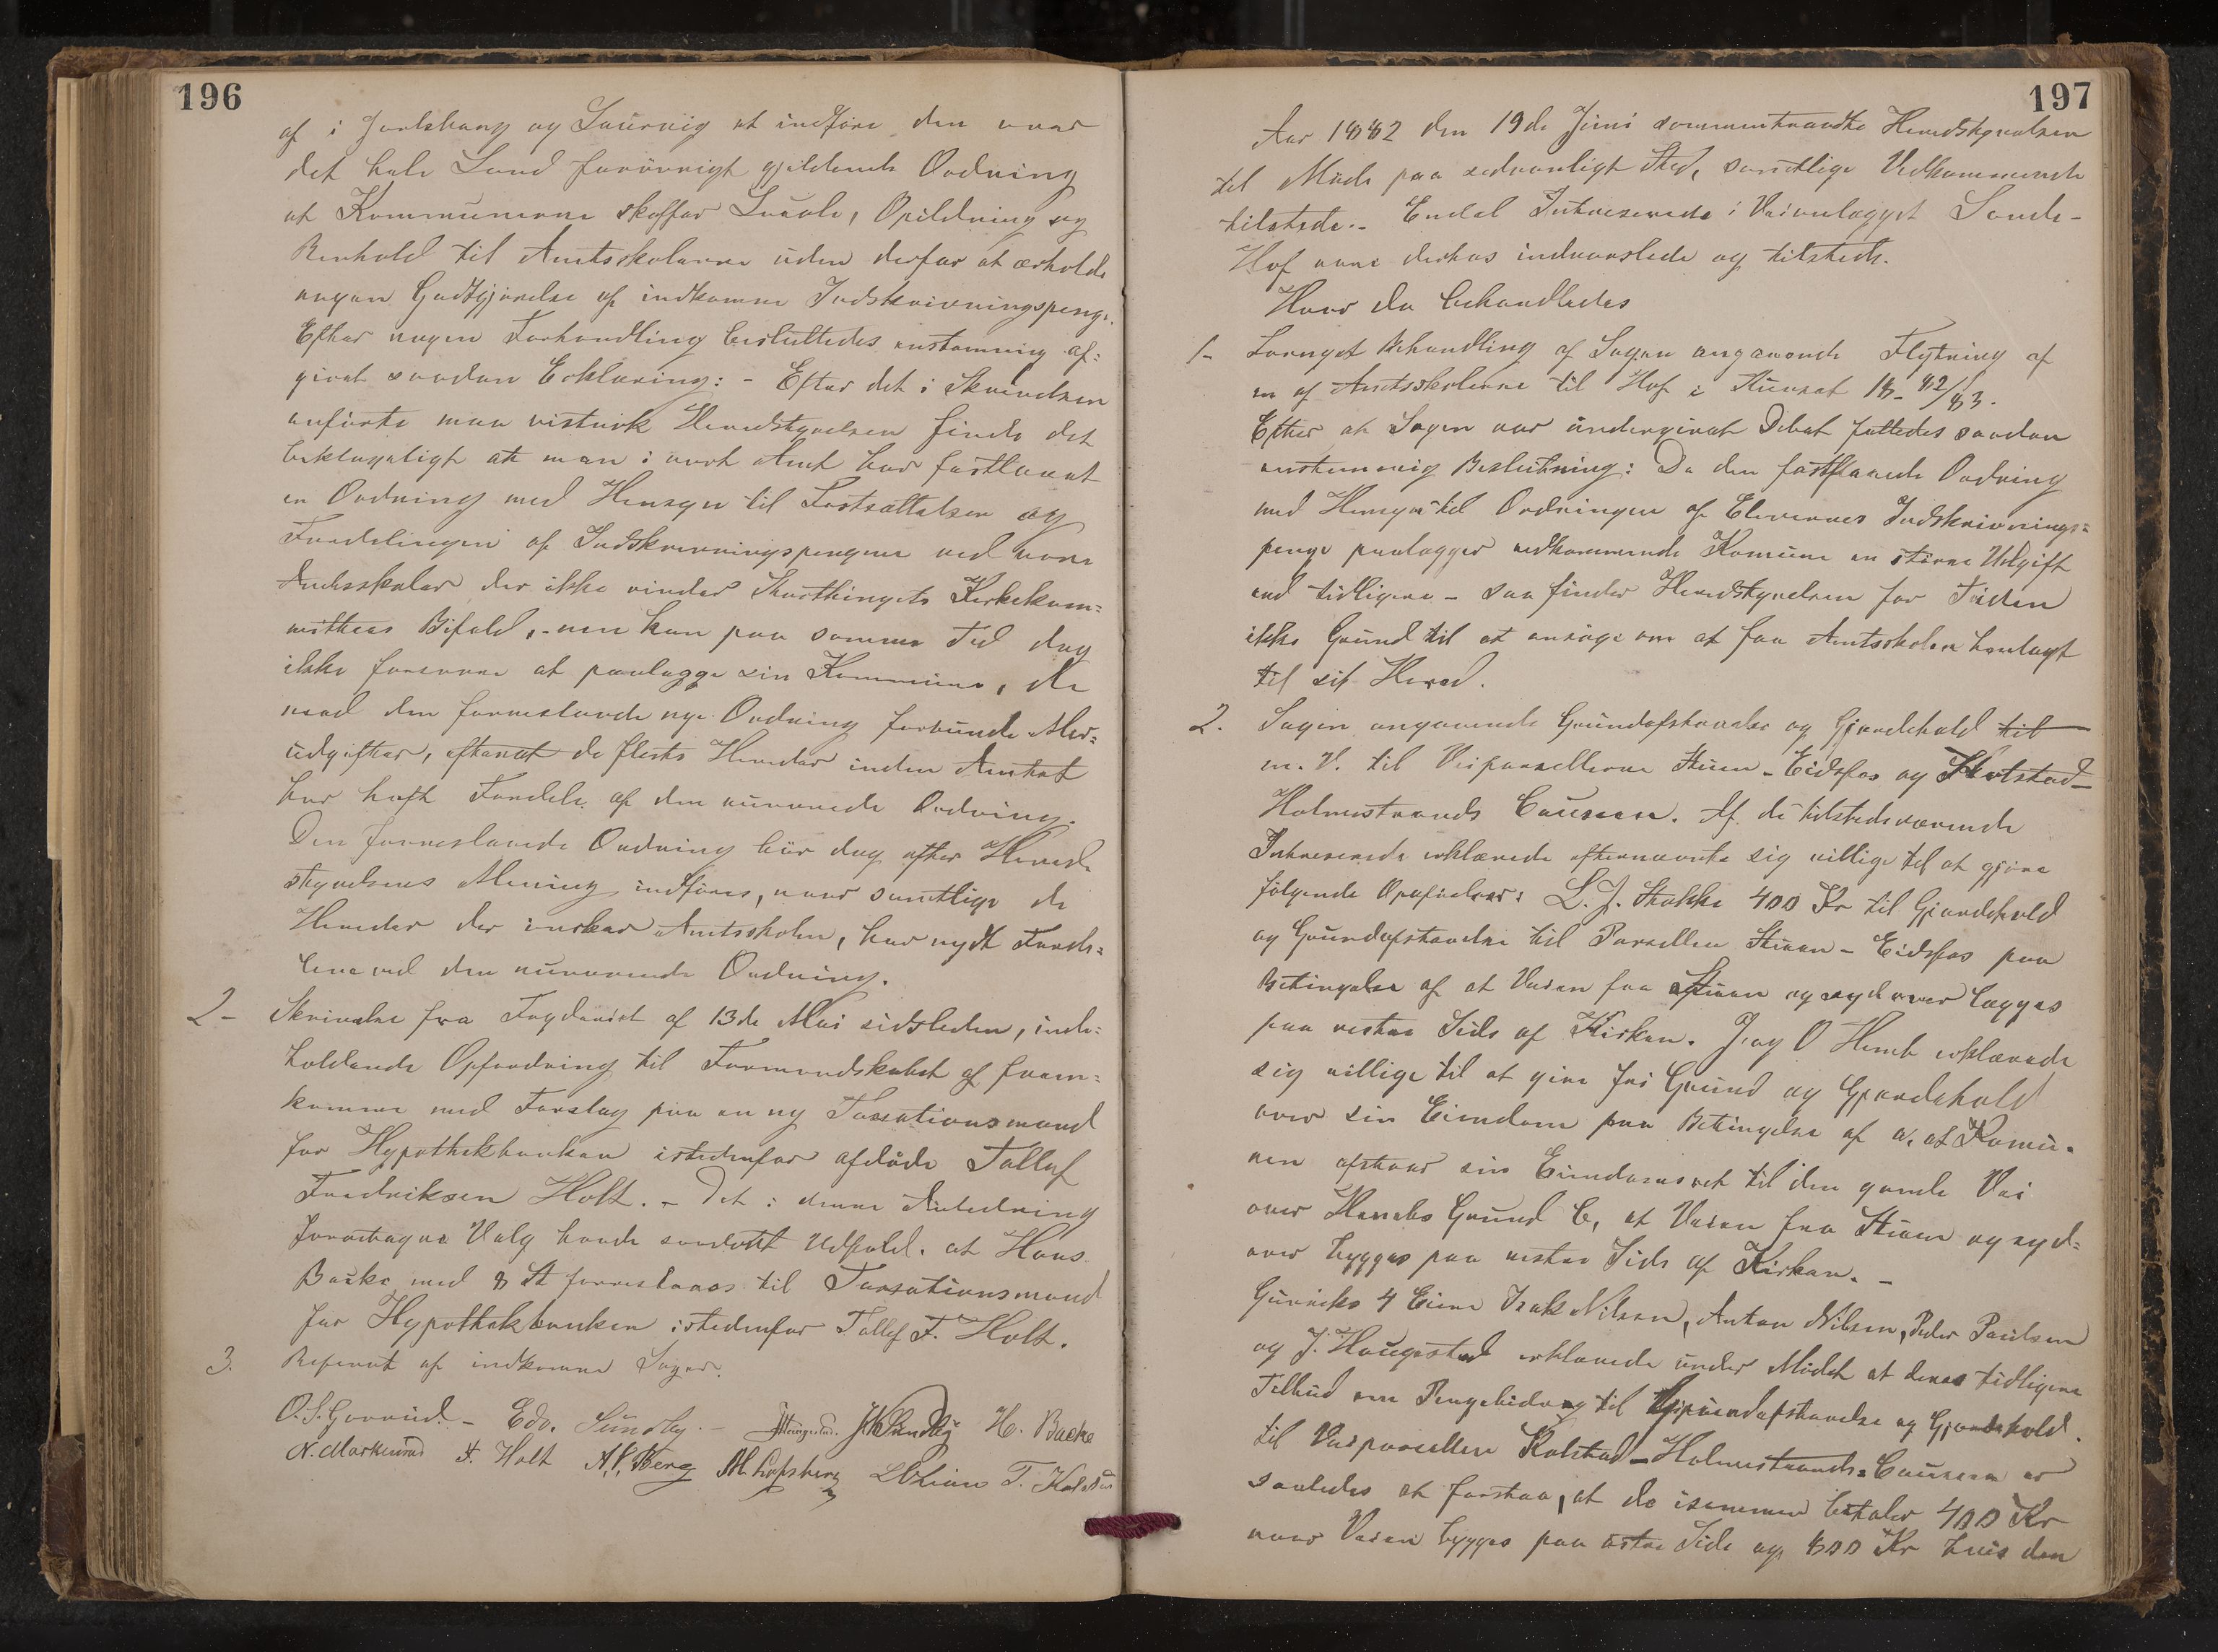 196
af i Jarlsberg og Laurvig at indføre den over
det hele Land forøvrigt gjeldende Ordning
at Kommunerne skaffer Locale, Opildning og
Renhold til Amtsskolerne uden derfor at erholde
nogen Godtgjørelse af indkomne Indskrivningspenge.
Efter nogen Forhandling besluttedes enstemmig af-
givet saadan Erklæring: - Efter det i Skrivelsen
anførte maa vistnok Herredstyrelsen finde det
beklageligt at man i vort Amt har fastlavet
en Ordning med Hensyn til Fastsættelsen og
Fordelingen af Indskrivningspengene ved vore
Amtsskoler der ikke vinder Storthingets Kirkekom-
mittees Bifald, - men kan paa samme Tid dog
ikke forsvare at paalægge sin Kommune, de
med den foreslaaede nye Ordning forbundne Mer-
udgifter, efterat de fleste Herreder inden Amtet
har havt Fordele af den nuværende Ordning.
Den foreslaaede Ordning bør dog efter Herreds-
styrelsens Mening indføres, naar samtlige de
Herreder der ønsker Amtsskolen, har nydt Forde-
lene ved den nuværende Ordning.
2- Skrivelse fra Fogderiet af 13de Mai sidstleden, inde-
holdende Opfordring til Formandskabet af frem-
komme med Forslag paa en ny Taxationsmand
for Hypothekbanken istedenfor afdøde Tollef
Fredriksen Holt. - Det i denne Anledning
foretagne Valg havde saadant Udfald. at Hans
Backe med 8 St foreslaaes til Taxationsmand
for Hypothekbanken istedenfor Tollef F. Holt.
3. Referat af indkomne Sager.
O. S. Grorud. - Edv. Sundby. - J Haugestad. JH Sundby H. Backe
N. Markerud F. Holt A. P. Berg T. Kolstad
197
Aar 1882 den 19de Juni sammentraadte Herredstyrelsen
til Møde paa sedvanligt Sted, samtlige Vedkommende
tilstede. - Endel Interesserede i Veianlægget Sande-
Hof vare derhos indvarslede og tilstede.
Hvor da behandledes
1- Fornyet Behandling af Sagen angaaende Flytning af
en af Amtsskolerne til Hof i Skoleaaret 18-82/83.
Efter at Sagen var undergivet Debat fattedes saadan
enstemmig Beslutning: Da den fastsatte Ordning
med Hensyn til Ordningen af Elevernes Indskrivnings-
penge paalægger vedkommende Komune en større Udgift
end tidligere - saa finder Herredstyrelsen for Tiden
ikke Grund til at ansøge om at faa Amtsskolen henlagt
til sit Herred.
2. Sagen angaaende Grundafstaaelse og Gjerdehold til
m. V. til Veiparsellerne Stuen - Eidsfos og Kolstad -
Holmestrands Causeen. Af de tilstedeværende
Interesserede erklærede efternævnte sig villige til at gjøre
følgende Opofrelser: L. J. Stokke 400 Kr til Gjerdehold
og Grundafstaaelse til Parsellen Stuen - Eidsfos paa
Betingelse af at Veien fra Stuen og sydover lægges
paa vestre Side af Kirken. J. og O Hemb erklærede
sig villige til at give fri Grund og Gjerdehold
over sin Eiendom paa Betingelse af a, at Komu-
nen afstaar sin Eiendomsret til den gamle Vei
over Hembs Grund b, at Veien fra Stuen og syd-
over bygges paa vestre Side af Kirken. -
4 Eiere Isak Nilsen, Anton Nilsen, Peder Paulsen
og J. Haugestad erklærede under Mødet at deres tidligere
Tilbud om Pengebidrag til Grundafstaaelse og Gjerdehold
til Veiparsellen Kolstad - Holmestrands-Causeen er
saaledes at forstaa, at de isammen betaler 400 Kr
naar Veien bygges paa østre Side og 800 Kr hvis den